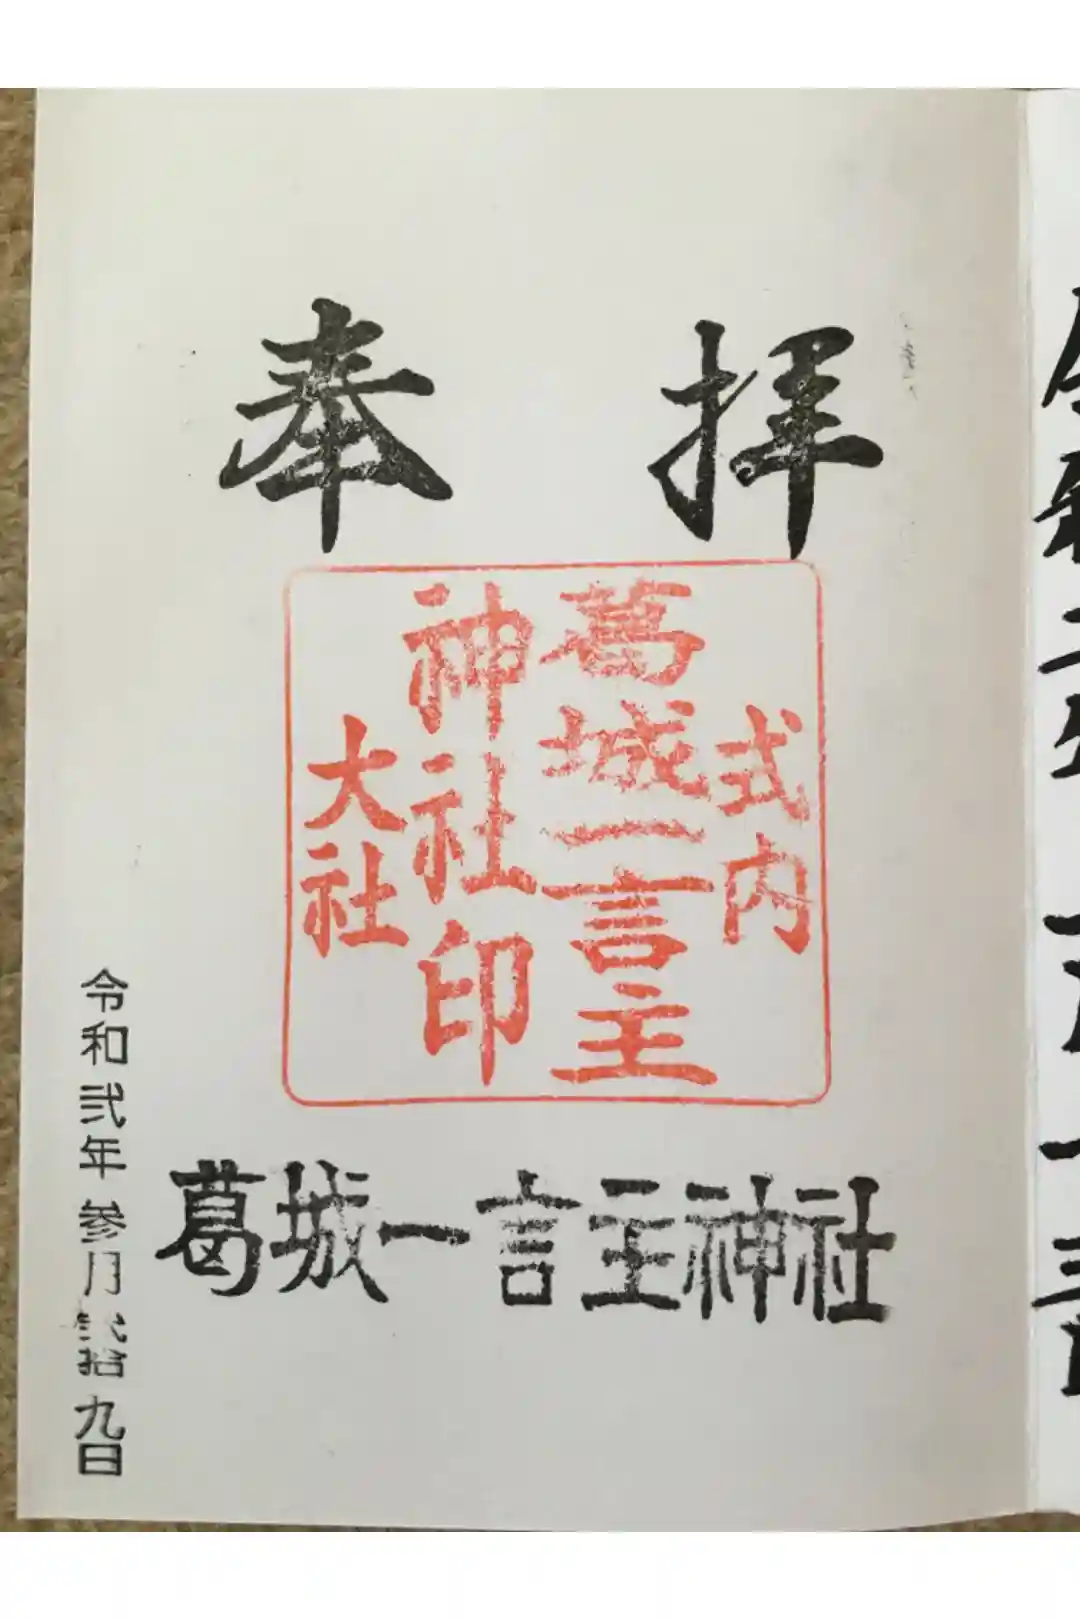 奉 拝
式内
葛城一言主
神社印
大社
葛城一言主神社
令和弐年参月弐拾九日